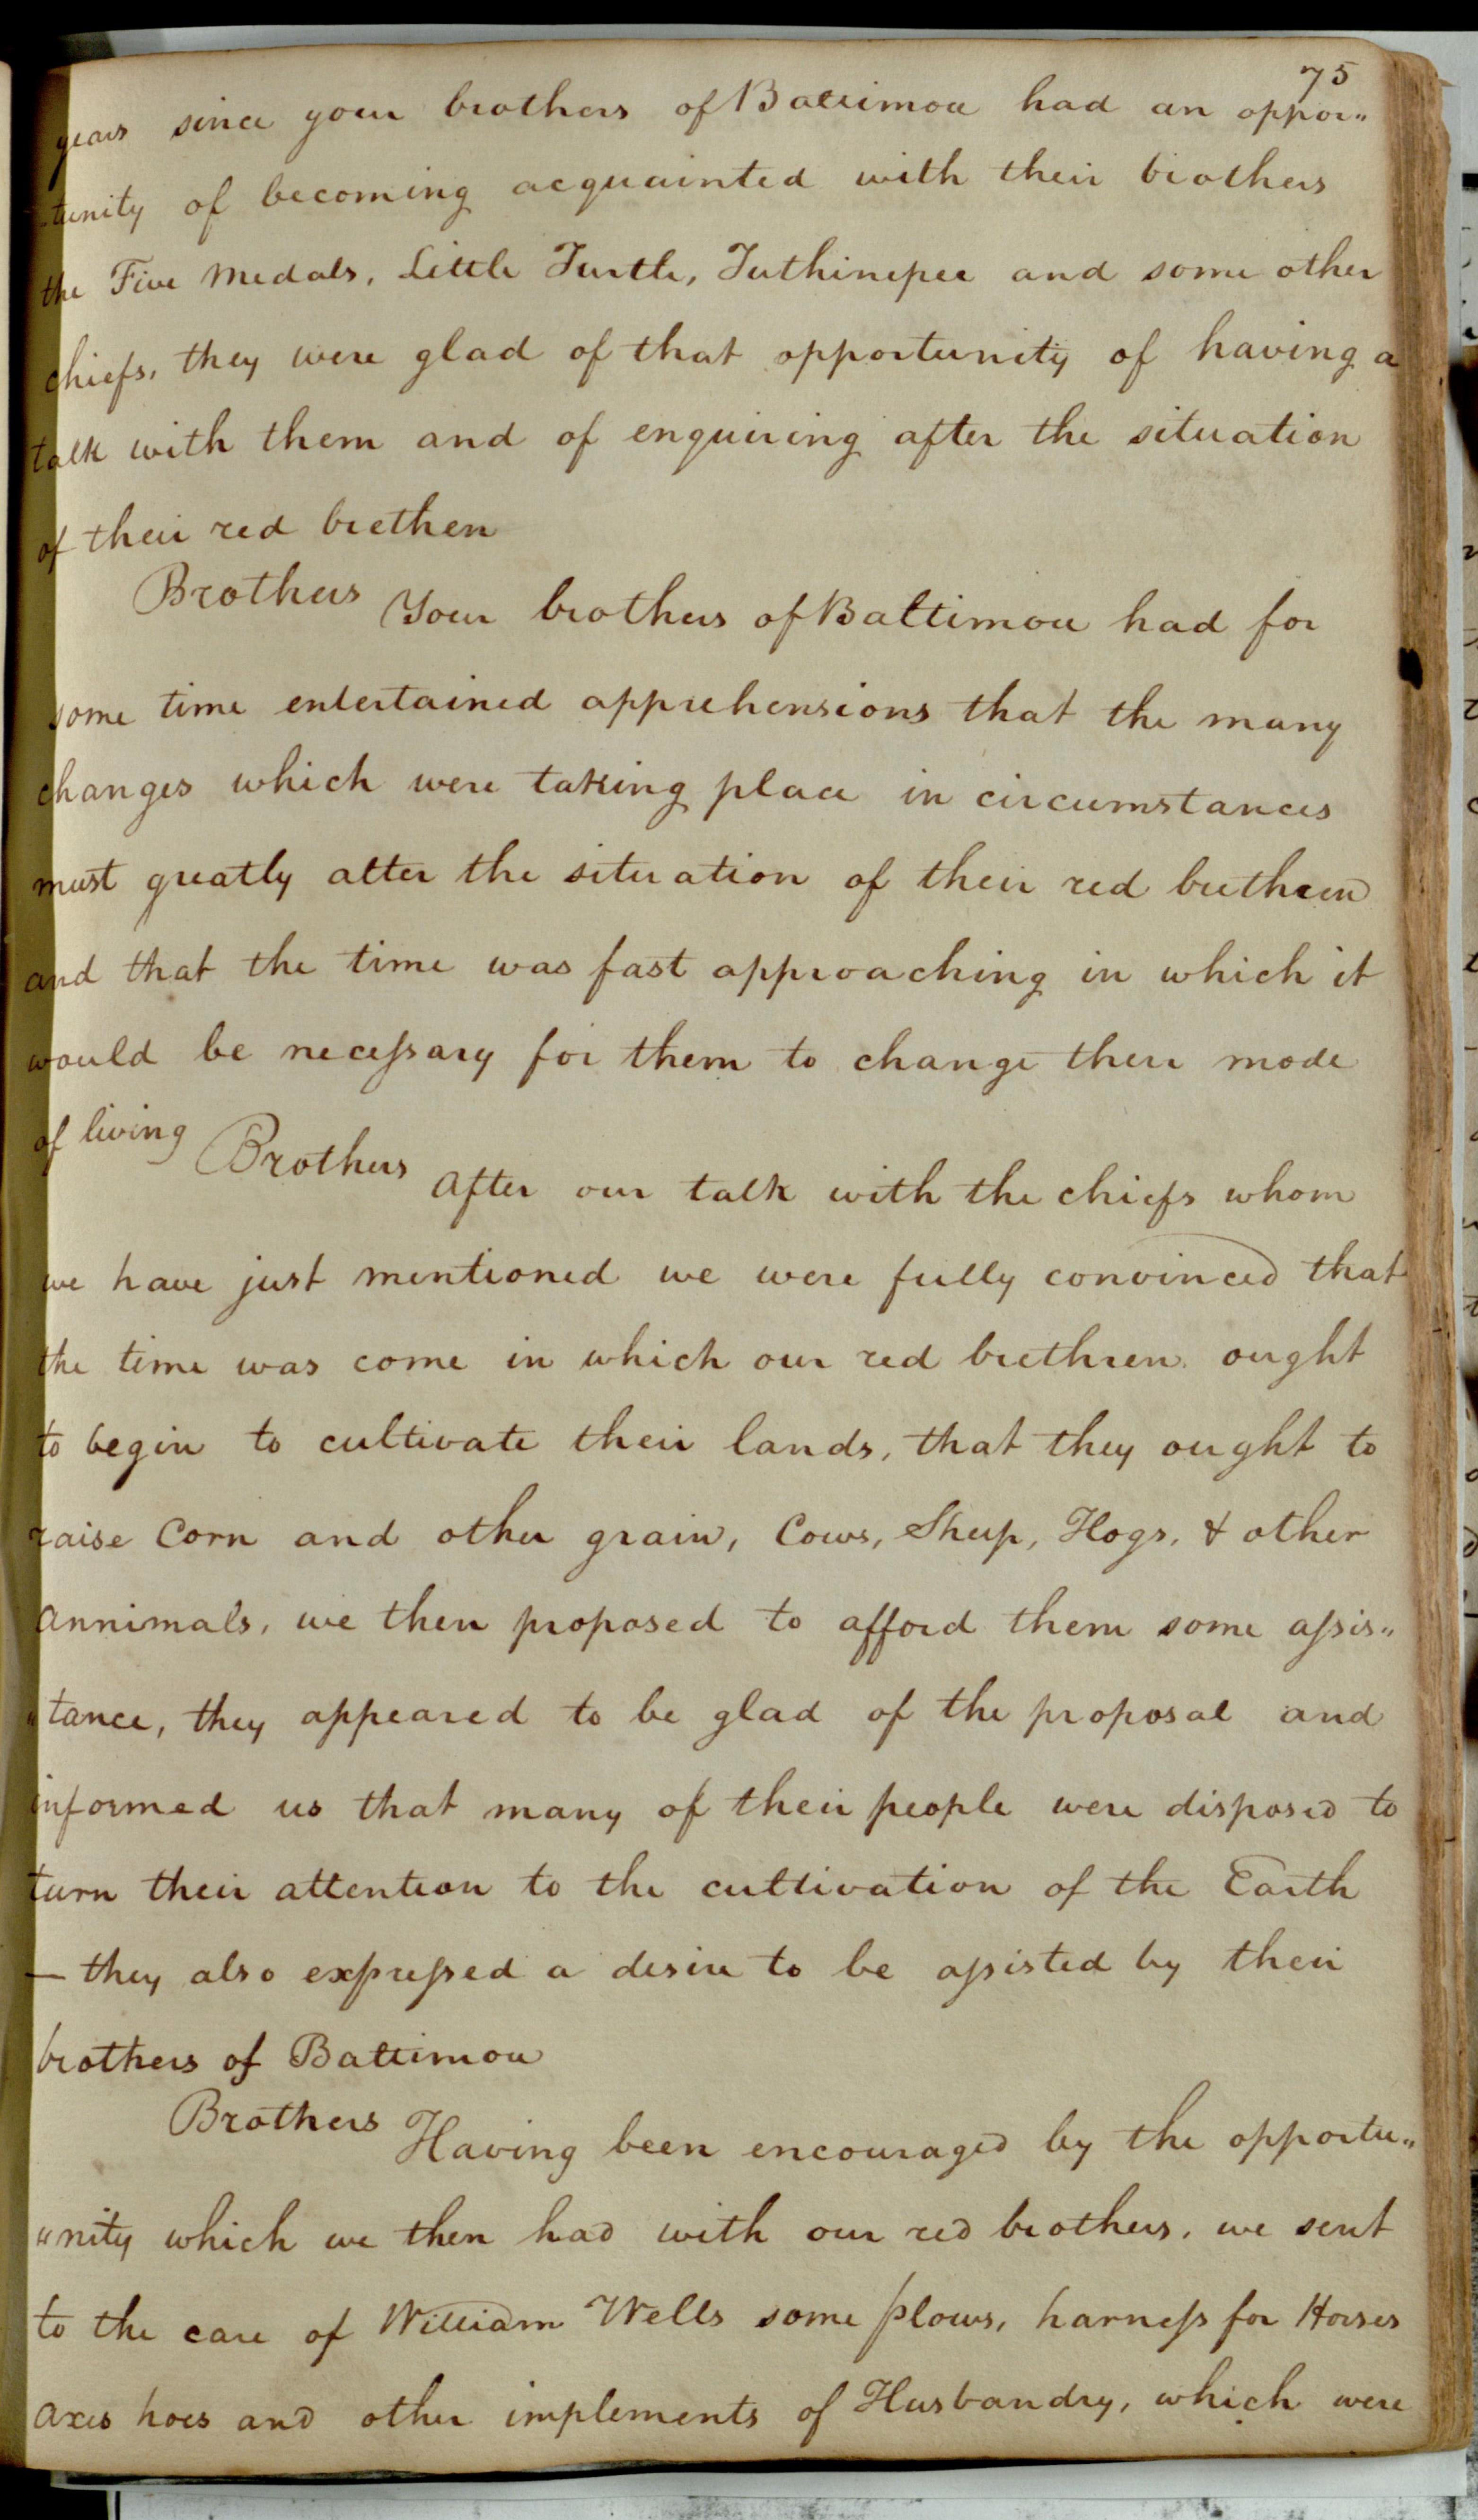 75
years since your brothers of Baltimore had an oppor„
-tunity of becoming acquainted with their brothers
the Five Medals, Little Turtle, Tuthinepee and some other
chiefs, they were glad of that opportunity of having a
talk with them and of enquiring after the situation
of their red brethen
Brothers Your brothers of Baltimore had for
some time entertained apprehensions that the many
changes which were taking place in circumstances
must greatly alter the situation of their red brethren
and that the time was fast approaching in which it
would be necessary for them to change their mode
of living Brothers After our talk with the chiefs whom
we have just mentioned we were fully convinced that
the time was come in which our red brethren ought
to begin to cultivate their lands, that they ought to
raise Corn and other grain, Cows, Sheep, Hogs, & other
annimals, we then proposed to afford them some assis„
„tance, they appeared to be glad of the proposal and
informed us that many of their people were disposed to
turn their attention to the cultivation of the Earth
— they also expressed a desire to be assisted by their
brothers of Baltimore
Brothers Having been encouraged by the opportu„
„nity which we then had with our red brothers, we sent
to the care of William Wells some plows, harness for Horses
axes hoes and other implements of Husbandry, which were